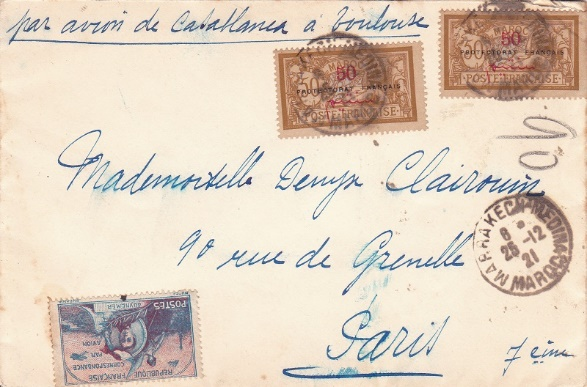 par avion de Casablanca à Toulouse
50
PROTECTORAT FRANÇAIS
POSTE FRANÇAISE
50
PROTECTORAT FRANÇAIS
POSTE FRANÇAISE
Mademoiselle Denyse Clairouin
90 rue de Grenelle
Paris
7 ème
MARRAKECH-MEDINA
8
25 -12
21
MAROC
REPUBLIQUE FRANÇAISE
CORRESPONDANCE
PAR AVION
GUYNEMER
POSTES